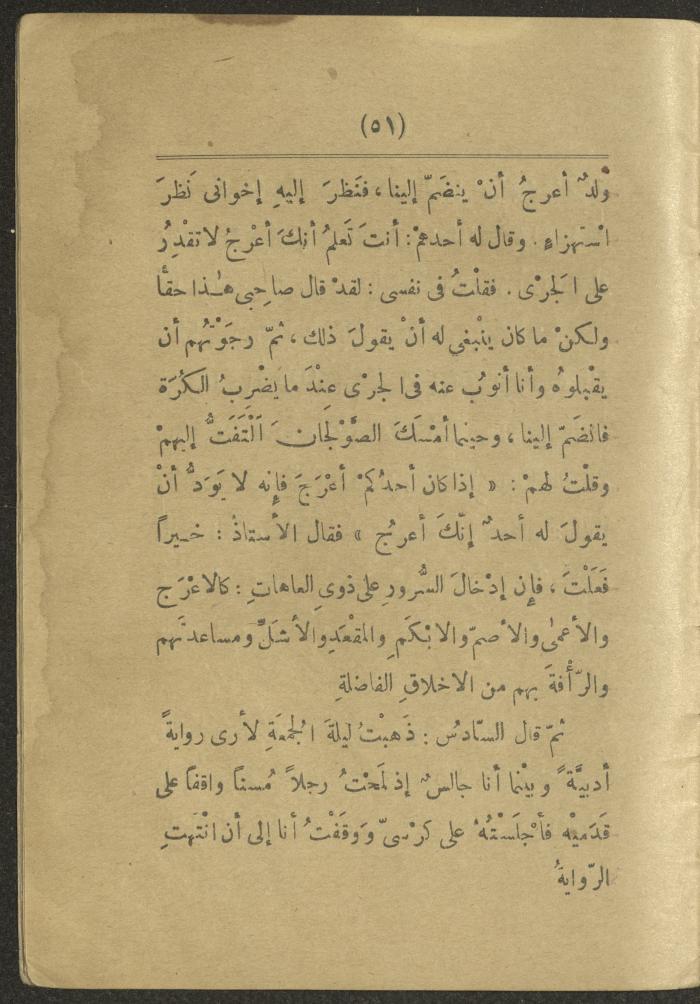 (٥١)
وَلدٌ أعرجُ أنْ ينضَمّ إلينا ، فنَظرَ إليهِ إخوانى نَظرَ
اسْتهزاءٍ . وقال له أحدهمْ : أنتَ تَعلمُ أنكَ أعْرجُ لاتقدِرُ
على الجرْى . فقلْتُ فى نفسى : لقدْ قال صاحِبى هٰذا حقاً
ولكنْ ما كان ينْبغى له أنْ يقولَ ذلك ، ثمّ رجَوْتُهم أن
يقْبلوهُ وأنا أنوبُ عنه فى الجرْى عِنْدَ ما يَضْرِبُ الكُرَة
فانضَمّ إلينا ، وحينما أمْسَكَ الصَّوْلجانَ اَلْتَفَتُّ إليهمْ
وقلْتُ لهمْ : « إذا كان أحدُكمْ أعْرَجَ فإنه لا يَوَدُّ أنْ
يقولَ له أحدٌ إنّكَ أعرجُ » فقال الأستاذُ : خيراً
فَعَلْتَ ، فإن إدْخالَ السُّرورِ على ذوى العاهاتِ : كالاعْرَج
والأعمٰى والأصمّ والابْكَمِ والمقْعَدِ والأشَلِّ ومساعدتَهم
والرّأْفةَ بهم من الاخلاقِ الفاضلةِ
ثمّ قال السّادسُ : ذَهبْتُ ليلةَ الجمْعَةِ لأرى روايةً
أدبيَّةً وبيْنما أنا جالسٌ إذ لمَحْتُ رجلاً مُسناً واقفاً على
قدَميْه فأجْلَسْتُهُ على كرْسىّ ووَقَفْتُ أنا إلى أن انْتَهتِ
الرّوايةُ